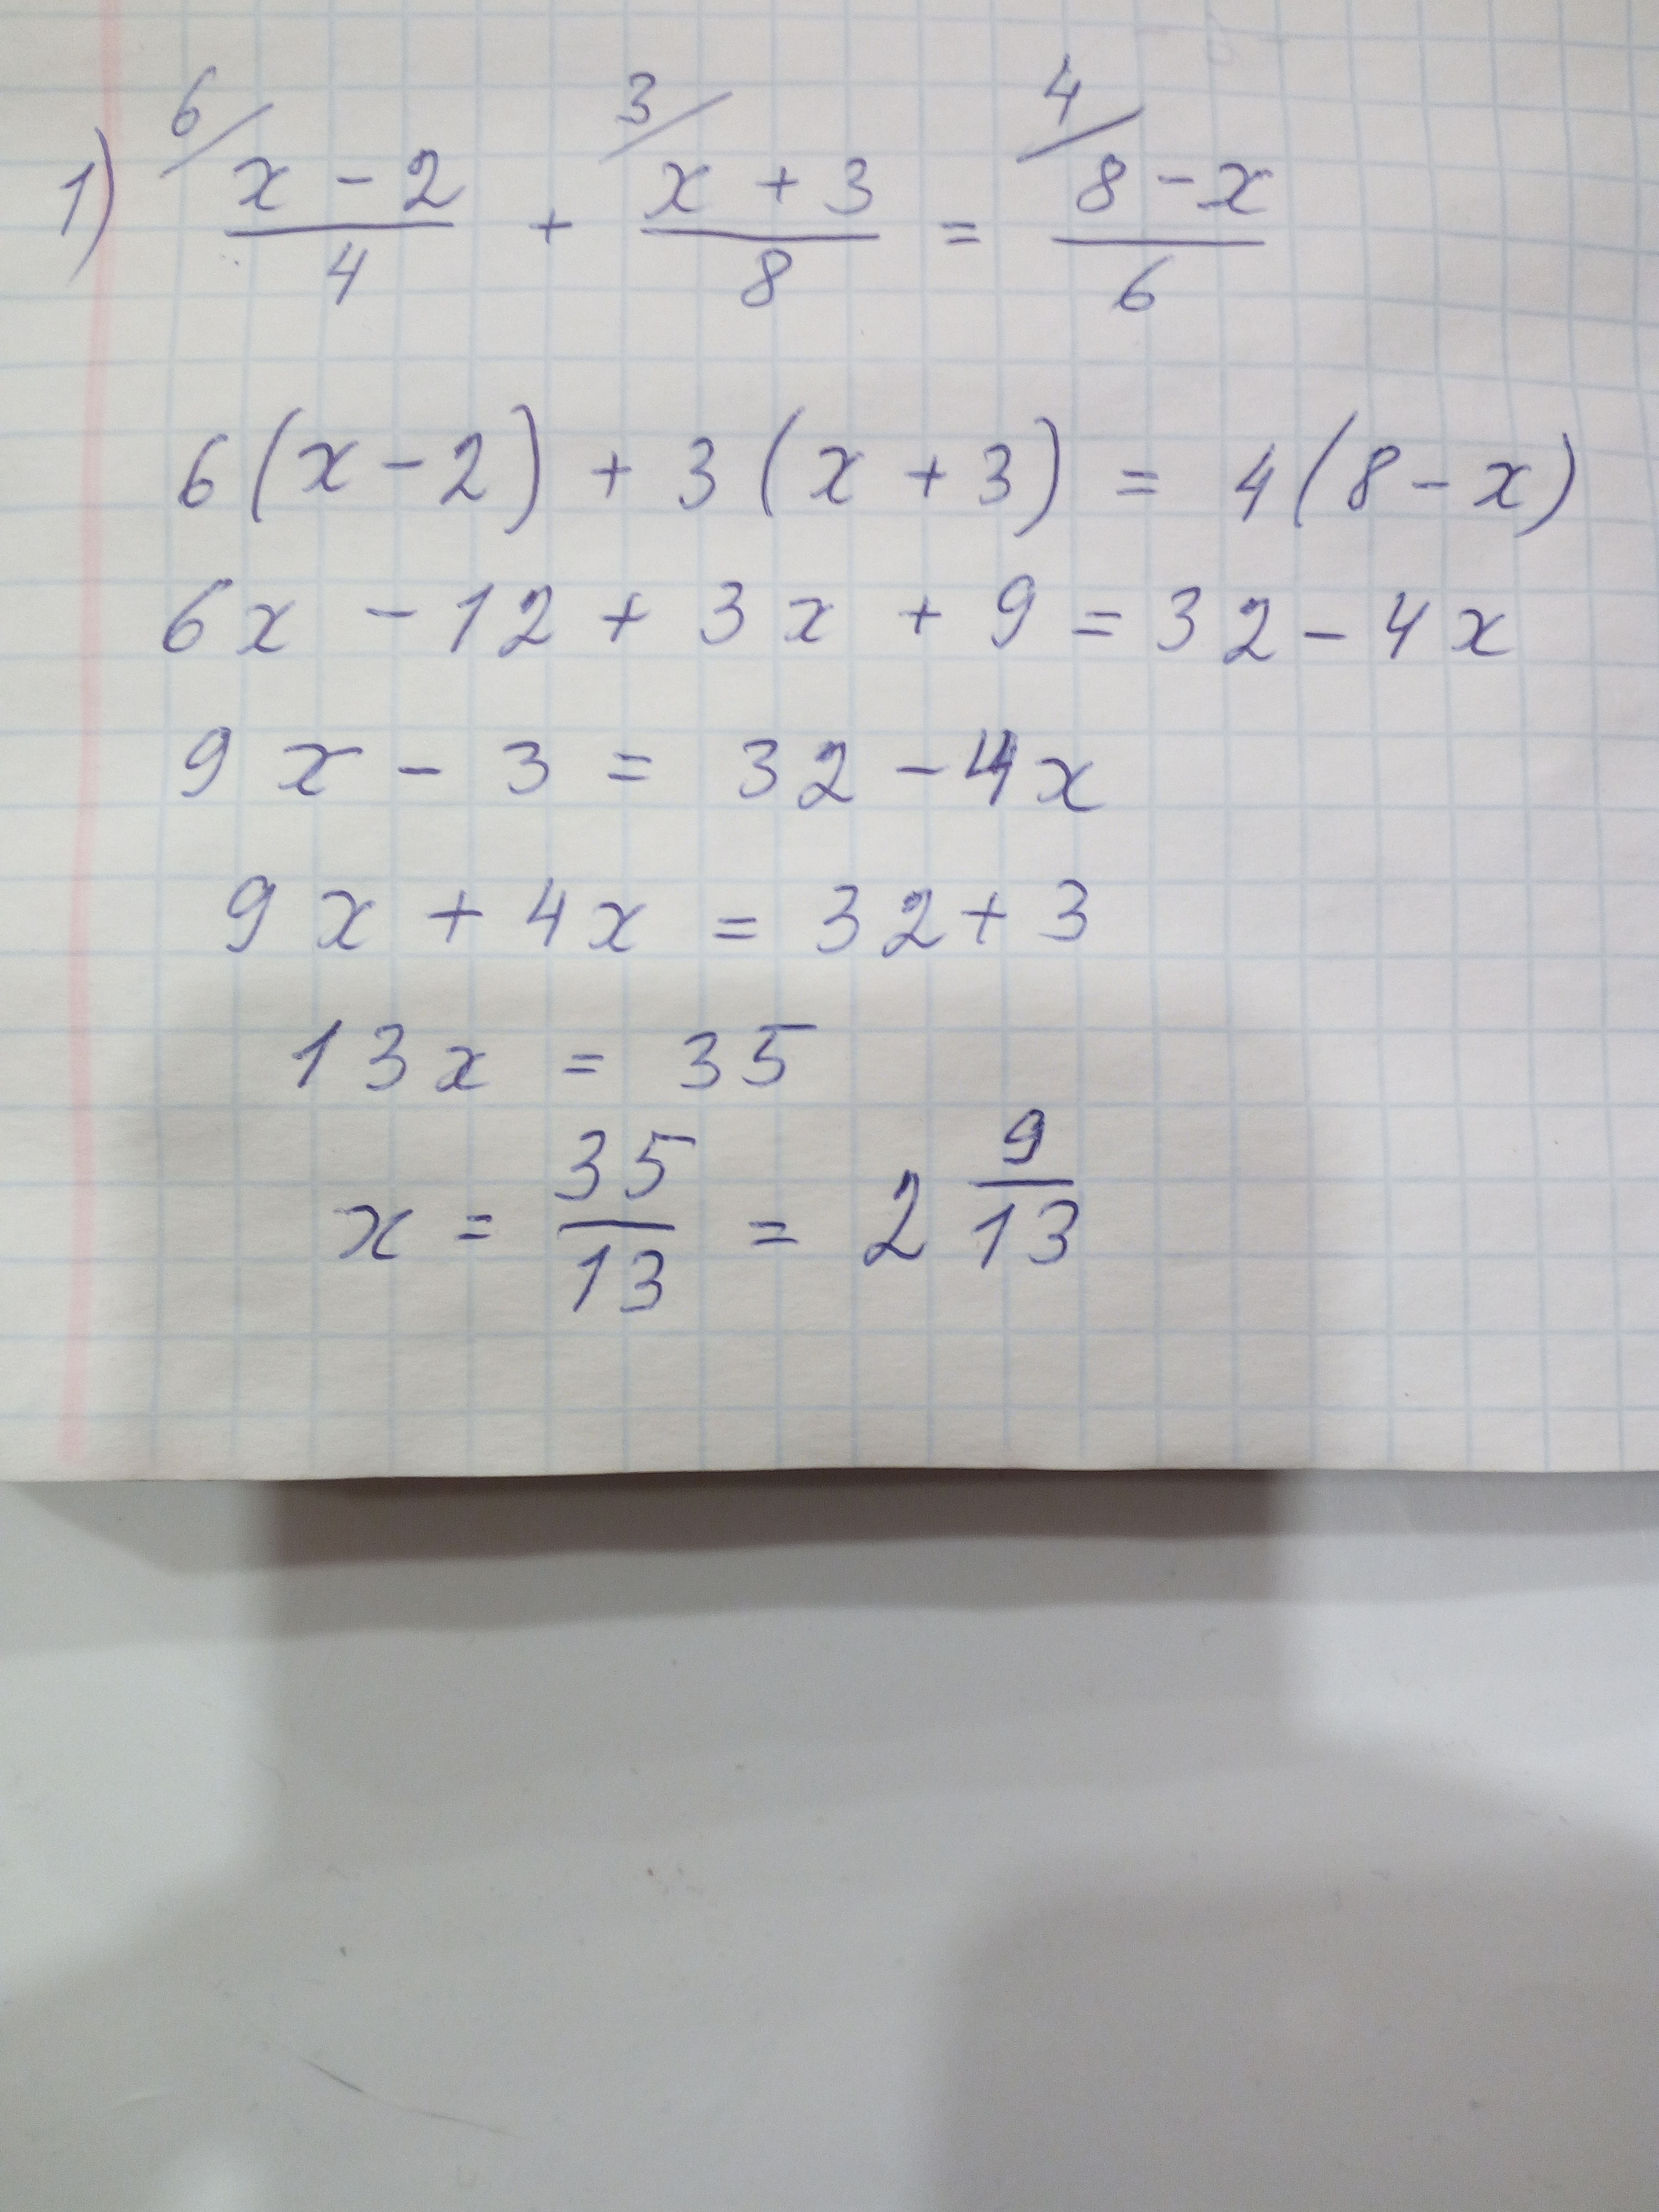 1) 6/ x - 2 / 4 + 3/ x + 3 / 8 = 4/ 8 - x / 6
6(x - 2) + 3(x + 3) = 4(8 - x)
6x - 12 + 3x + 9 = 32 - 4x
9x - 3 = 32 - 4x
9x + 4x = 32 + 3
13x = 35
x = 35/13 = 2 9/13